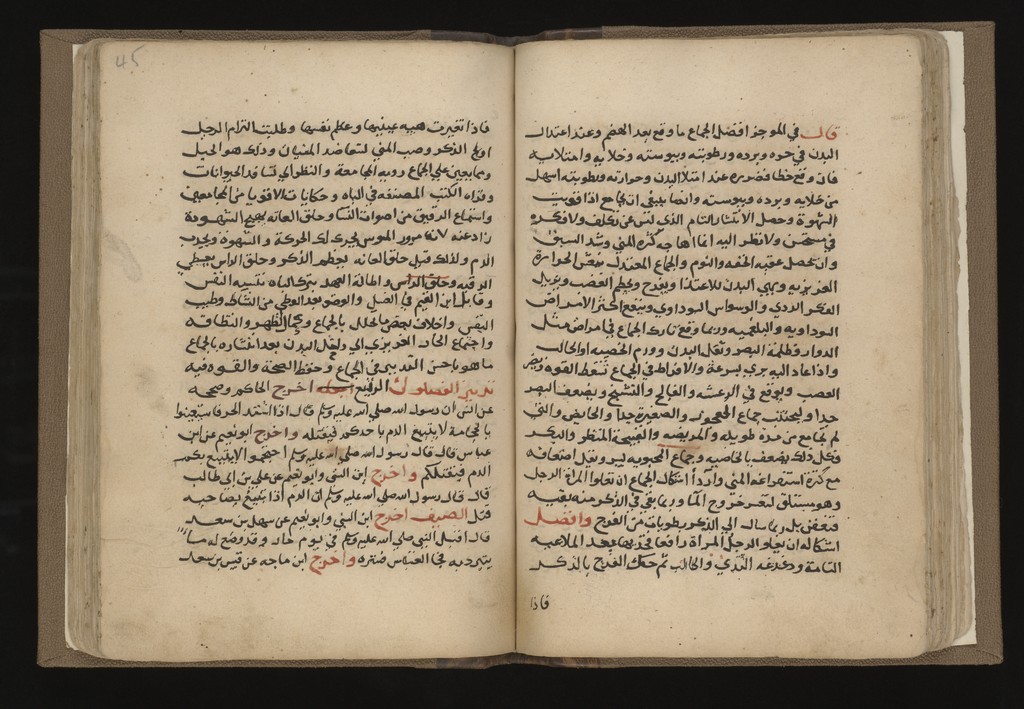 قال في الموجز افضل الجماع ما وقع بعد الهضم وعند اعتدال
البدن في حره وبرده ورطوبته ويبوسته وخلايه وامتلايه
فان وقع خطا فضرره عند امتلا البدن وحرارته ورطوبته اسهل
من خلايه وبرده ويبوسته وانما ينبغي ان يجامع اذا قويت
الشهوة وحصل الانتشار التام الذي ليس عن تكلف ولا فكره
في مستحسن ولا نظر اليه انما اهاجه كثره المني وشدة السبق
وان يحصل عقبه الخفه والنوم والجماع المعتدل ينعش الحرارة
الغريزيه ويهيي البدن للاغتذا ويفرح ويحطم الغضب ويزيل
الفكر الردي والوسواس السوداوي وينفع اكثر الامراض
السوداويه والبلغميه وربما وقع تارك الجماع في امراض مثل
الدوار وظلمة البصر وثقل البدن وورم الخصيه او الحالب
واذا عاد اليه بري بسرعة والافراط في الجماع يسقط القوه ويضر
العصب ويوقع في الرعشه والفالج والتشنج ويضعف البصر
جدا وليجتنب جماع العجوز والصغيرة جدا والحايض والتي
لم تجامع من مدة طويله والمريضه والقبيحة المنظر والبكر
فكل ذلك يضعف بالخاصيه وجماع المحبوبه يسر ويقل اضعافه
مع كثرة استفراغه المني واردا اشكال الجماع ان تعلوا المراة الرجل
وهو مستلق لتعسر خروج الما وربما بقي في الذكر منه بقيه
فتعفن بل ربما سال الي الذكر رطوبات من الفرج وافضل
اشكاله ان يعلو الرجل المراة رافعا فخذيها بعد الملاعبه
التامة ودغدغه الثدي والحالب ثم حك الفرج بالذكر
فاذا
45
فاذا تغيرت هييه عينيها وعظم نفسها وطلبت التزام الرجل
اولج الذكر وصب المني لتعاضد المنيان وذلك هو الحبل
ومما يعين علي الجماع رويه المجامعة والنظر الي تسافد الحيوانات
وقراه الكتب المصنفه في الباه وحكايات الاقويا من المجامعين
واستماع الرقيق من اصوات النسا وحلق العانه يهيج الشهوة
زاد عنه لان مرور الموسي يحرك تلك الحركة والشهوة ويجذب
الدم ولذلك قيل حلق العانه يعظم الذكر وحلق الراس يغلظ
الرقبه وحلق الراس واطالة العهد بترك الباه تنسيه النفس
وقال ابن القيم في الغسل والوضو بعد الوطي من النشاط وطيب
النفس واخلاف بعض ما تحلل بالجماع وكمال الطهر والنظافة
واجتماع الحار الغريزي الي داخل البدن بعد انتشاره بالجماع
ما هو من احسن التدبير في الجماع وحفظ الصحة والقوه فيه
تدبير الفصول الربيع اخرج الحاكم وصححه
عن انس ان رسول الله صلي الله عليه وسلم قال اذا اشتد الحر فاستعينوا
بالحجامة لا يتبيغ الدم باحدكم فيقتله واخرج ابو نعيم عن ابن
عباس قال قال رسول الله صلي الله عليه وسلم احتجموا لا يتبيغ بكم
الدم فيقتلكم واخرج ابن السني وابو نعيم عن علي بن ابي طالب
قال قال رسول الله صلي الله عليه وسلم ان الدم اذا تبيغ بصاحبه
قتل الصيف اخرج ابن السني وابو نعيم عن سهل بن سعد
قال اقبل النبي صلي الله عليه وسلم في يوم حار وقد وضع له ما
يتبرد به فجا العباس فستره واخرج ابن ماجه عن قيس بن سعد